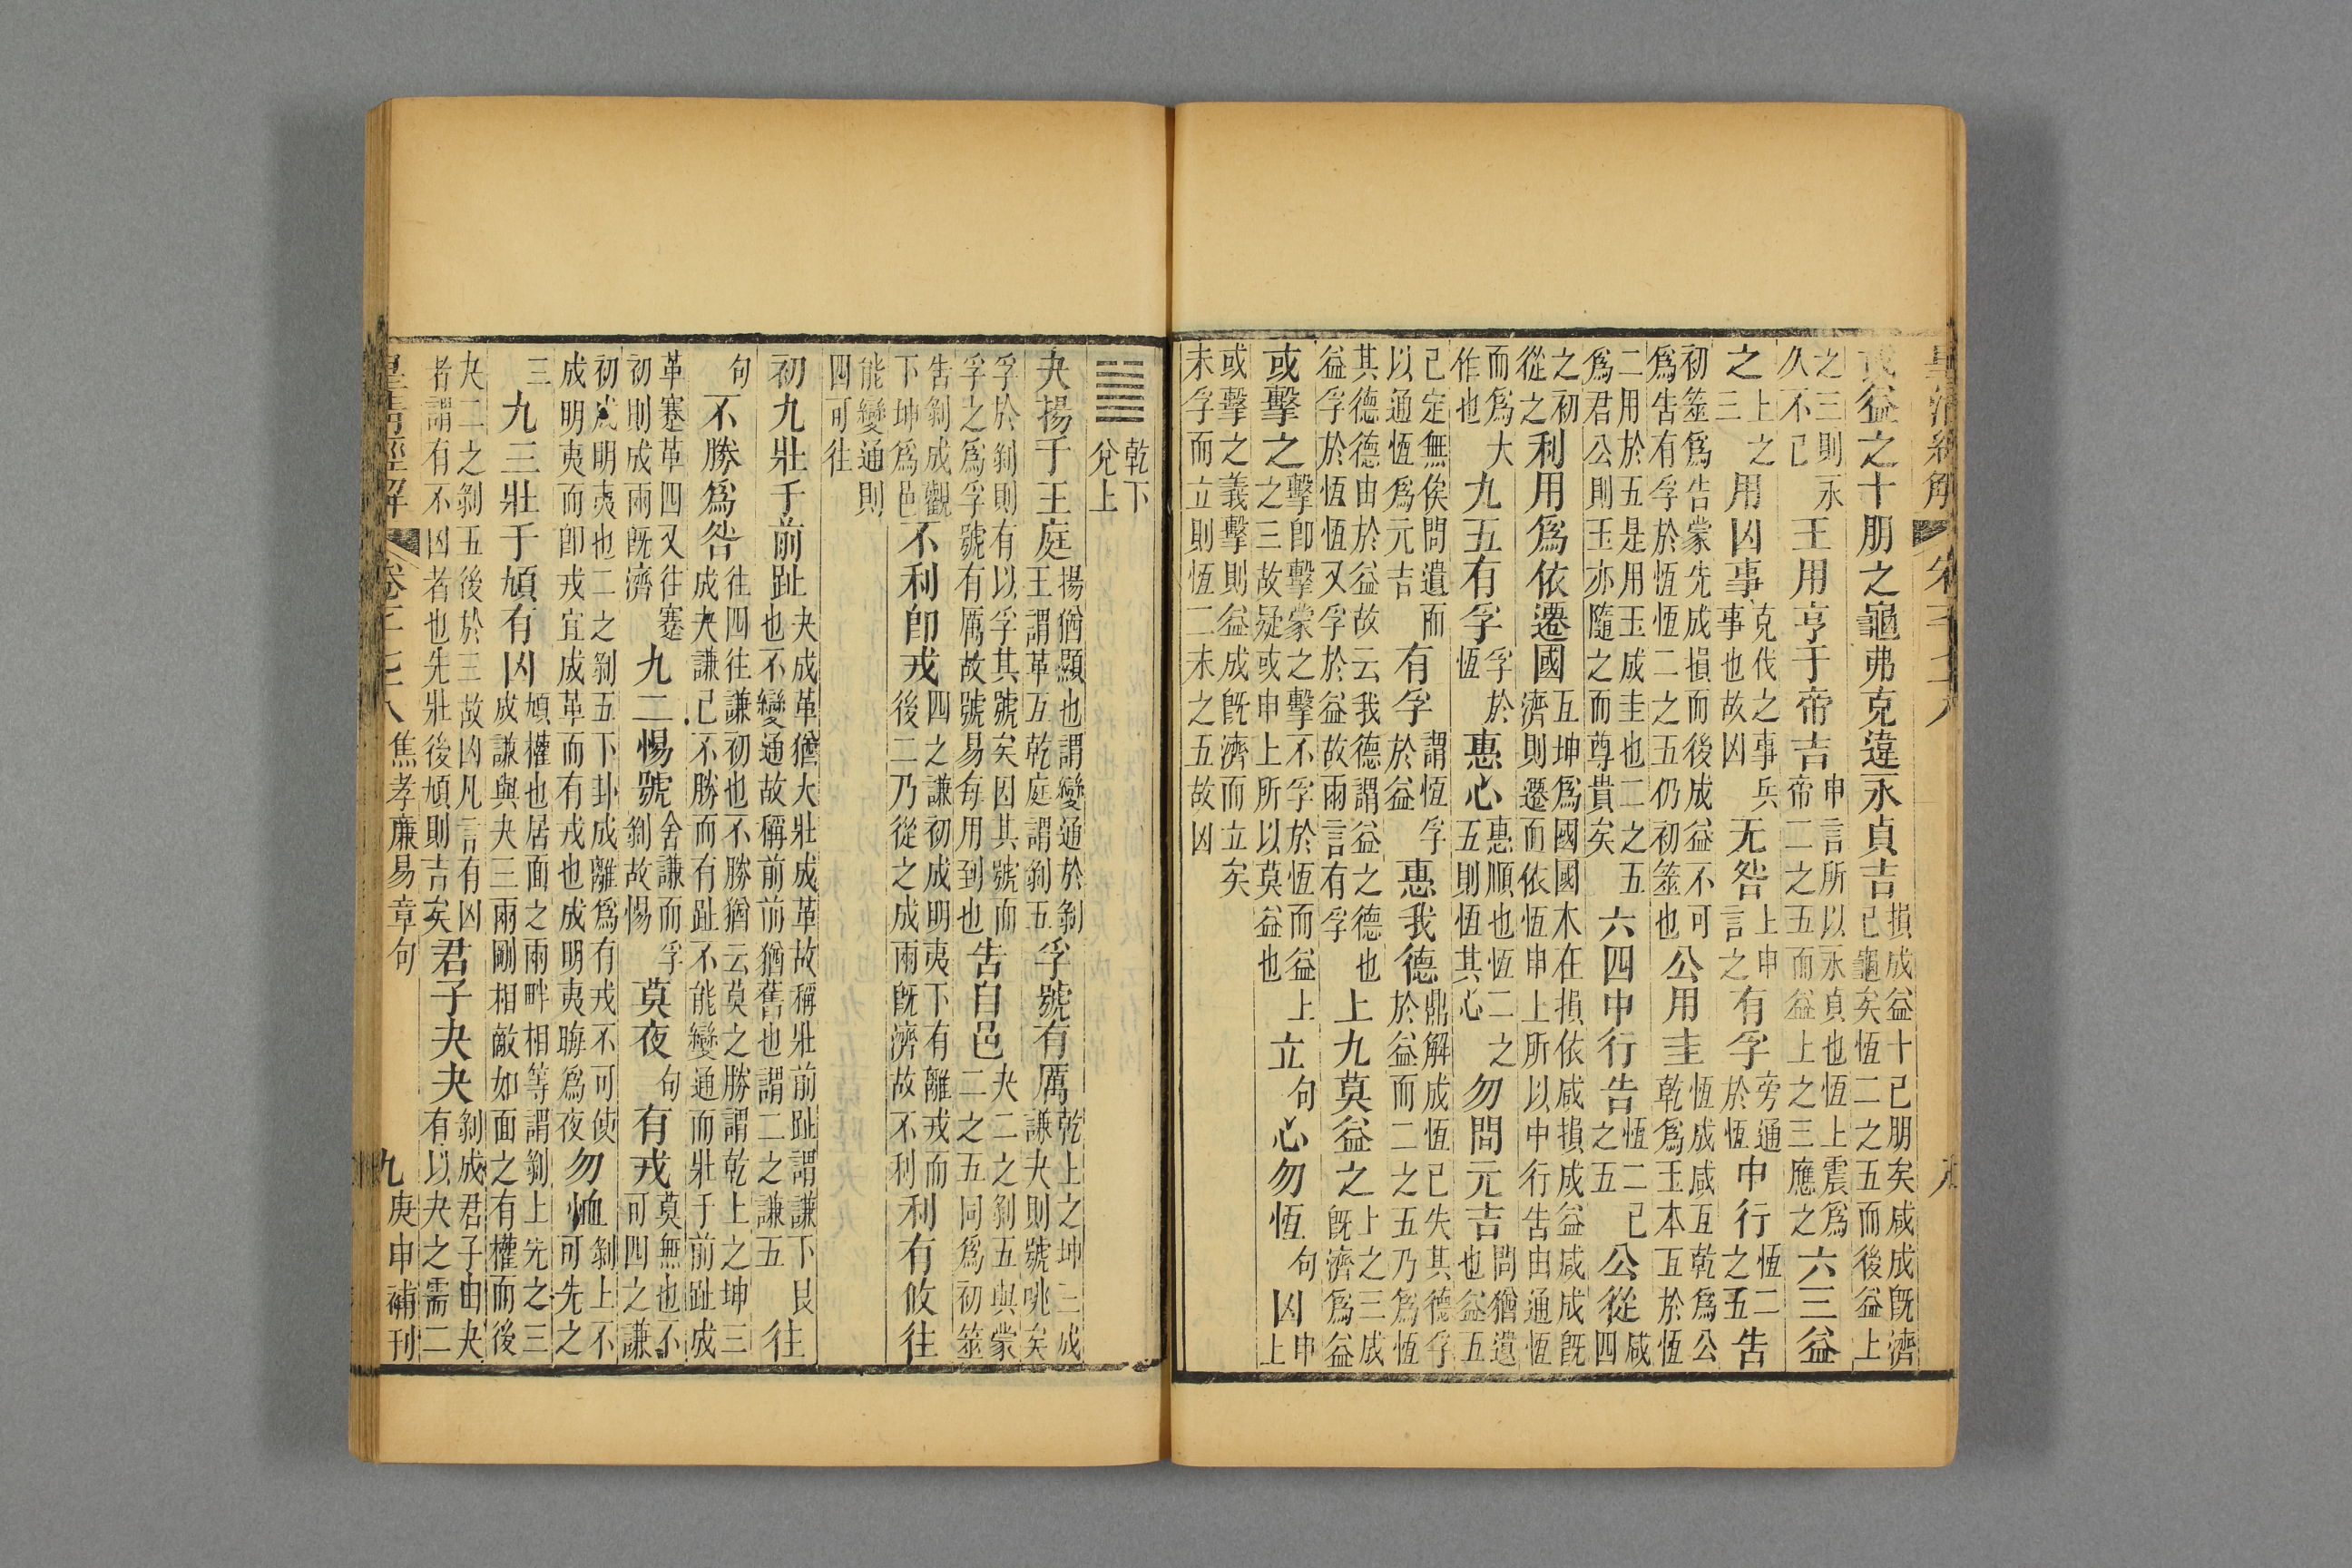 或益之十朋之龜弗克違永貞吉損成益十已朋矣咸成既濟
已龜矣恆二之五而後益上
之三則永
久不已王用亨于帝吉申言所以永貞也恆上震爲
帝二之五而益上之三應之六三益
之上之
三用凶事克伐之事兵
事也故凶无咎上申
言之有孚旁通
於恆中行恆二
之五告
初筮爲告蒙先成損而後成益不可
爲告有孚於恆恆二之五仍初筮也公用圭恆成咸互乾爲公
乾爲玉本互於恆
二用於五是用玉成圭也二之五
爲君公則玉亦隨之而尊貴矣六四中行告恆二已
之五公從咸
四
之初
從之利用爲依遷國互坤爲國國木在損依咸損成益咸成既
濟則遷而依恆申上所以中行告由通恆
而爲大
作也九五有孚孚於
恆惠心惠順也恆二之
五則恆其心勿問元吉問猶遺
也益五
已定無俟問遺而
以通恆爲元吉有孚謂恆孚
於益惠我德鼎解成恆已失其德孚
於益而二之五乃爲恆
其德德由於益故云我德謂益之德也
益孚於恆恆又孚於益故兩言有孚上九莫益之上之三成
既濟爲益
或擊之擊卽擊蒙之擊不孚於恆而益上
之三故疑或申上所以莫益也立句心勿恆句凶申
上
或擊之義擊則益成既濟而立矣
未孚而立則恆二未之五故凶
䷪乾下
兌上
夬揚于王庭揚猶顯也謂變通於剝
王謂革互乾庭謂剝五孚號有厲乾上之坤三成
謙夬則號咷矣
孚於剝則有以孚其號矣因其號而
孚之爲孚號有厲故號易每用到也告自邑夬二之剝五與蒙
二之五同爲初筮
告剝成觀
下坤爲邑不利卽戎四之謙初成明夷下有離戎而
後二乃從之成兩既濟故不利利有攸往
能變通則
四可往
初九壯于前趾夬成革猶大壯成革故稱壯前趾謂謙下艮
也不變通故稱前前猶舊也謂二之謙五往
句不勝爲咎往四往謙初也不勝猶云莫之勝謂乾上之坤三
成夬謙已不勝而有趾不能變通而壯于前趾成
革蹇革四又往蹇
初則成兩既濟九二惕號舍謙而孚
剝故惕莫夜句有戎莫無也不
可四之謙
初成明夷也二之剝五下卦成離爲有戎不可使
成明夷而卽戎宜成革而有戎也成明夷晦爲夜勿恤剝上不
可先之
三九三壯于頄有凶頄權也居面之兩畔相等謂剝上先之三
成謙與夬三兩剛相敵如面之有權而後
夬二之剝五後於三故凶凡言有凶
者謂有不凶者也先壯後頄則吉矣君子夬夬剝成君子由夬
有以夬之需二
皇清經解 焦孝廉易章句 九 庚申補刊